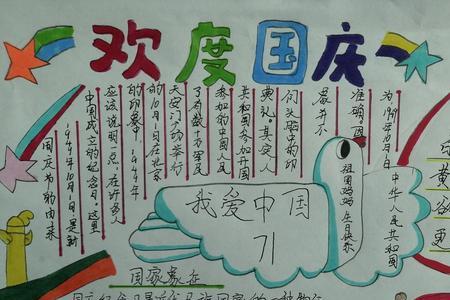 欢度国庆
国庆节的由来
1949年10月1日,是新
中国成立的纪念日。这里
应该说明一点,在许多人
的印象中,1949年
的10月1日在北京
天安门广场举行
了有数十万军民
参加的中国人民
共和国参加开国
典礼。其实,人
们头脑中的印
象并不
准确。因
为1949年10月1日
中华人民共和国
祖国妈妈生日快乐
我爱中国
71
国家象征
国庆纪念日是近代民族国家的一种
黄